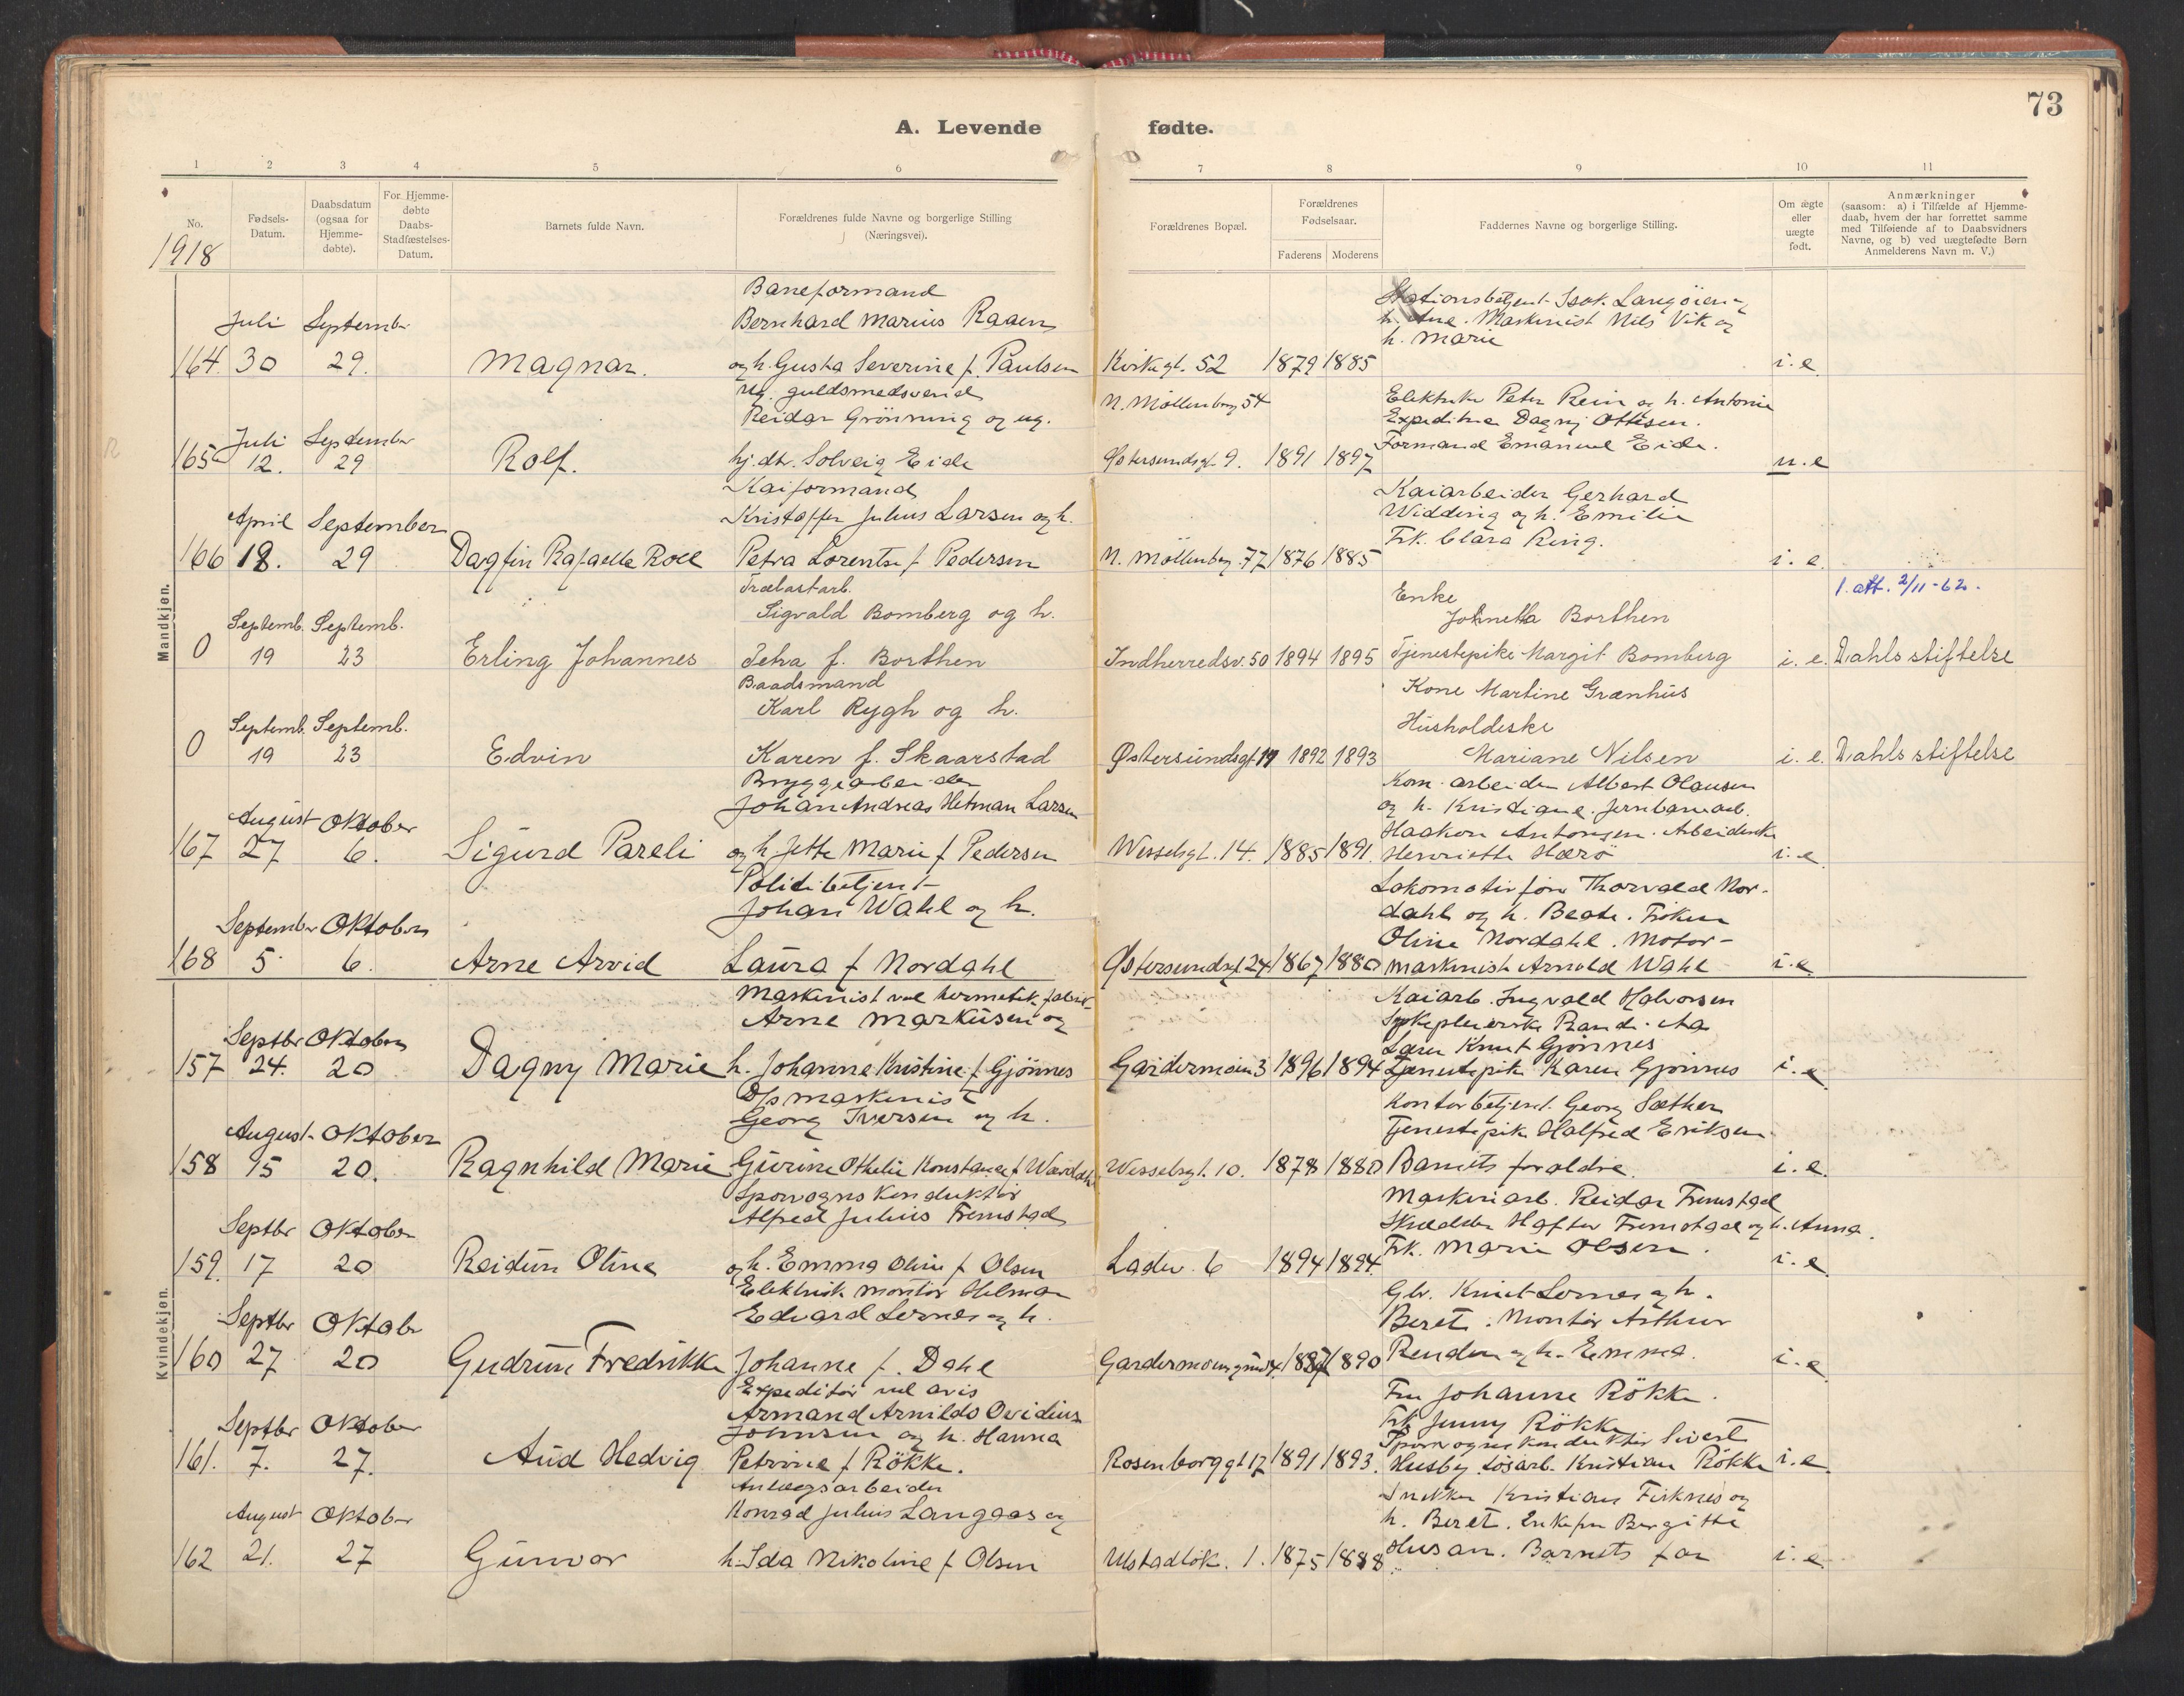 73
A. Levende fødte.
1 2 3 4 5 6 7 8 9 10 11
No.
Fødsels-Datum.
Daabsdatum (ogsaa for Hjemme-døbte).
For Hjemme-døbte Daabs-Stadfæstelses-Datum.
Barnets fulde Navn.
Forældrenes fulde Navne og borgerlige Stilling (Næringsvei).
Forældrenes Bopæl.
Forældrenes Fødselsaar.
Faderens Moderens
Faddernes Navne og borgerlige Stilling.
Om ægte eller uægte født.
Anmærkninger
(saasom: a) i Tilfælde af Hjemme-
daab, hvem der har forrettet samme
med Tilføiende af to Daabsvidners
Navne, og b) ved uægtefødte Børn
Anmelderens Navn m. V.)
1918
Mandkjøn.
Baneformand
Bernhard Marius Raaen
Juli September
164. 30 29. Magnar. og h. Gusta Severine f. Paulsen
Kirkegt. 52 1879 1885
Stationsbetjent Isak Langöien og
h. Ane. Maskinist Nils Vik og
h. Marie
i. e.
ug. guldsmedsvend
Reidar Grönning og ug.
Juli September
165 12. 29 Rolf. hj. dtr. Solveig Eide
N. Möllenberg 54
Østersundsgt. 9. 1891 1897
Peter Rein og h. Antonie
Dagny Ottesen.
Formand Emanuel Eide.
u. e
Kaiformand
Kristoffer Julius Larsen og h.
April September
166 18. 29 Dagfin Rafaelle Roll Petra Lorentse f. Pedersen
N. Möllenberg 77 1876 1885
Kaiarbeider Gerhard
Widding og h. Emilie
Frk. Clara Ring.
i. e.
1. att. 2/11-62.
Trælastarb.
Sigvald Bomberg og h.
Septemb. Septemb.
0 19 23 Erling Johannes Petra f. Borthen
Indherredsv. 50 1894 1895
Enke
Johnetta Borthen
Tjenestepike Margit Bomberg
i. e. Dahls stiftelse
Baadsmand
Karl Rygh og h.
Septemb. Septemb.
0 19 23 Edvin Karen f. Skaarstad
Østersundsgt 1892 1893
Kone Martine Grænhus
Husholderske
Mariane Nilsen
i. e. Dahls stiftelse
Bryggearbeider
Johan Andreas Hetman Larsen
August Oktober
167 27 6. Sigurd Pareli og h. Jette Marie f. Pedersen
Wesselsgt. 14. 1885 1891.
Kom. arbeider Albert Olausen
og h. Kristiane. Jernbanearb.
Haakon Antonsen. Arbeiderske
Henriette Hærö
i. e.
Politibetjent
Johan Wahl og h.
September Oktober
168 5. 6. Arne Arvid Laura f. Nordahl
Østersundsgt. 24 1867 1880
Lokomotivför Thorvald Nor-
dahl og h. Beate. Fröken
Oline Nordahl. Motor-
maskinist Arnold Wahl
i. e.
Kvindekjøn.
Maskinist ved hermetikfabrik
Arne Markusen og
Septbr Oktober
157 24. 20 Dagny Marie h. Johanne Kristine f. Gjönnes
Gardermoen 3 1896 1894
Kaiarb. Ingvald Halvorsen
Sykepleierske Randi Aa
Lærer Knut Gjönnes
Tjenestepike Karen Gjönnes
i. e.
D/s maskinist
Georg Iversen og h.
August Oktober
158 15 20. Ragnhild Marie Gurine Othelie Konstance f.
Wesselsgt. 10. 1878 1880
Kontorbetjent Georg Sæther
Tjenestepike Halfred Eriksen.
Barnets foraldre.
i. e.
Sporvognskonduktör
Alfred Julius Fremstad
Septbr Oktober
159. 17 20 Reidun Oline og h. Emma Oline f. Olsen
Ladev. 6 1894 1894.
Maskinarb. Reidar Fremstad
Skrædder Haftor Fremstad og h. Anna.
Frk. Marie Olsen.
i. e.
Elektrisk montör Helmer
Edvard Lernes og h.
Septbr Oktobr
160 27 20 Gudrun Fredrikke Johanne f. Dahl
1887 1890
Gbr. Knut Lernes og h.
Beret. Montör Arthur
og h. Emma.
i. e.
Expeditör ved avis
Armand Arnildo Ovidius
Johnsen og h. Hanna
Septbr Oktober
161. 7. 27. Aud Hedvig Petrine f. Rökke.
Rosenborggt 17 1891 1893.
Fru Johanne Rökke.
Frk. Jenny Rökke
Sporvognskonduktör Sivert
Husby. Lösarb. Kristian Rökke
i. e.
Anlægsarbeider
Konrad Julius Langaas og
August Oktober
162 21. 27 Gunvor h. Ida Nikoline f. Olsen
Ulstadlök. 1. 1875 1888.
Snekker Kristian Firknes og
h. Beret. Enkefru Bergitte
Husan. Barnets far
i. e.